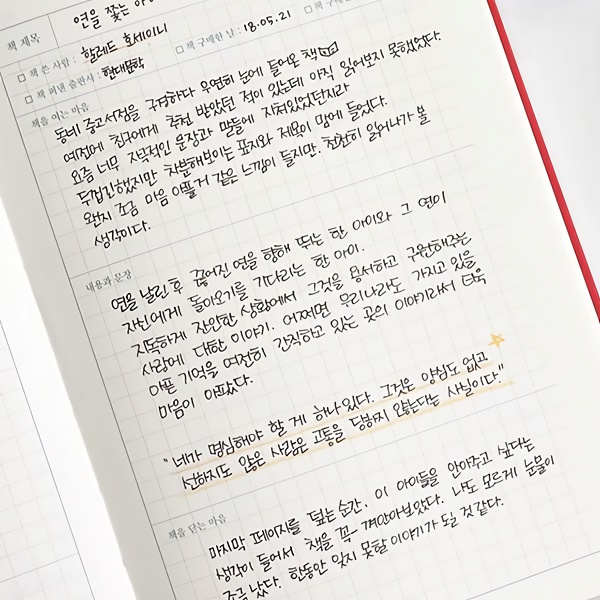 책 제목 연을 쫓는 아이
□ 책 쓴 사람 : 할레드 호세이니
□ 책 펴낸 출판사 : 현대문학 □ 책 구매한 날 : 18.05.21
책을 여는 마음
동네 중고서점을 구경하다 우연히 눈에 들어온 책
예전에 친구에게 추천 받았던 적이 있는데 아직 읽어보지 못했었다.
요즘 너무 자극적인 문장과 말들에 지쳐있었던지라
두껍긴했지만 차분해보이는 표지와 제목이 맘에 들었다.
왠지 조금 마음 아플거 같은 느낌이 들지만, 천천히 읽어나가 볼
생각이다.
내용과 문장
연을 날린 후 끊어진 연을 향해 뛰는 한 아이와 그 연이
자신에게 돌아오기를 기다리는 한 아이.
지독하게 잔인한 상황에서 그것을 용서하고 구원해주는
사랑에 대한 이야기. 어쩌면 우리나라도 가지고 있을
아픈 기억을 여전히 간직하고 있는 곳의 이야기라서 더욱
마음이 아팠다.
"네가 명심해야 할 게 하나 있다. 그것은 양심도 없고
선하지도 않은 사람은 고통을 당하지 않는다는 사실이다."
책을 닫는 마음
마지막 페이지를 덮는 순간, 이 아이들을 안아주고 싶다는
생각이 들어서 책을 꼭 껴안아보았다. 나도 모르게 눈물이
조금 났다. 한동안 잊지 못할 이야기가 될 것 같다.